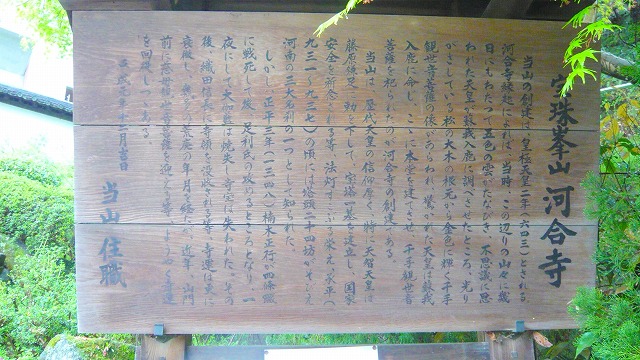 宝珠峯山 河合寺
当山の創建は、皇極天皇二年(六四三)とされる
河合寺縁起によれば、当時、この辺りの山々に幾
日にもわたって五色の雲がたなびき、不思議に思
われた天皇が蘇我入鹿に調べさせたところ、光り
かがやいている松の大木の根元から金色に輝く千手
観世音菩薩の像があらわれ、驚かれた天皇は蘇我
入鹿に命じ、ここに本堂を建てさせ、千手観世音
菩薩を祀られたのが河合寺の創建である
当山は、歴代天皇の信仰篤く、特に天智天皇は
藤原鎌足に勅を下して、宝塔一基を建立し、国家
安全を祈念される等、法灯さいぶる栄え、承平(
九三一〜九三七)の頃には塔頭二十四坊がそびえ
河南の三大名刹の一つとして知られた
しかし、正平三年(一三四八)楠木正行が四條畷
に戦死して後、足利氏の攻めるところとなり、一
夜にして大伽藍は焼失し寺宝も失われた、その
後、織田信長に寺領を没収される等、寺運は更に
衰微し、幾多の荒廃の年月を経たが、近年、山門
前に慈母観世音菩薩を迎える等、ようやく寺運
を回復しつつある。
平成元年十二月吉日
当山 住職